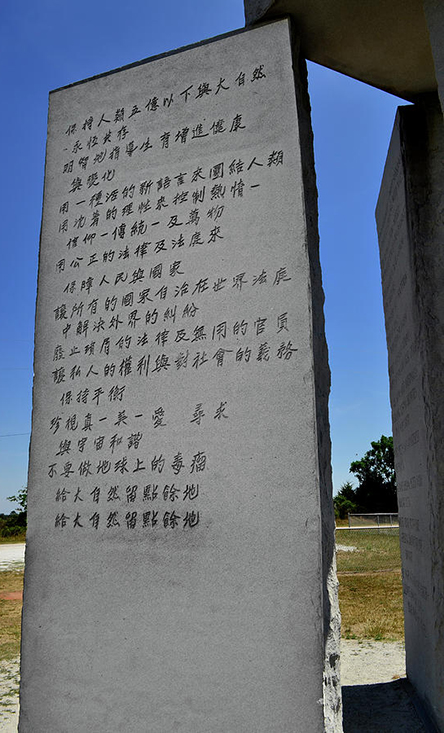 保持人類五億以下與大自然
-永恆共存
明智地指導生育增進健康
與變化
用一種活的新語言來團結人類
用沈着的理性來控制熱情一
信仰一傳統一及萬物
用公正的法律及法庭來
保障人民與國家
讓所有的國家自治在世界法庭
中解決外界的糾紛
廢止瑣屑的法律及無用的官員
讓私人的權利與對社會的義務
保持平衡
珍視真一美一愛 尋求
與宇宙和諧
不要做地球上的毒瘤
給大自然留點餘地
給大自然留點餘地